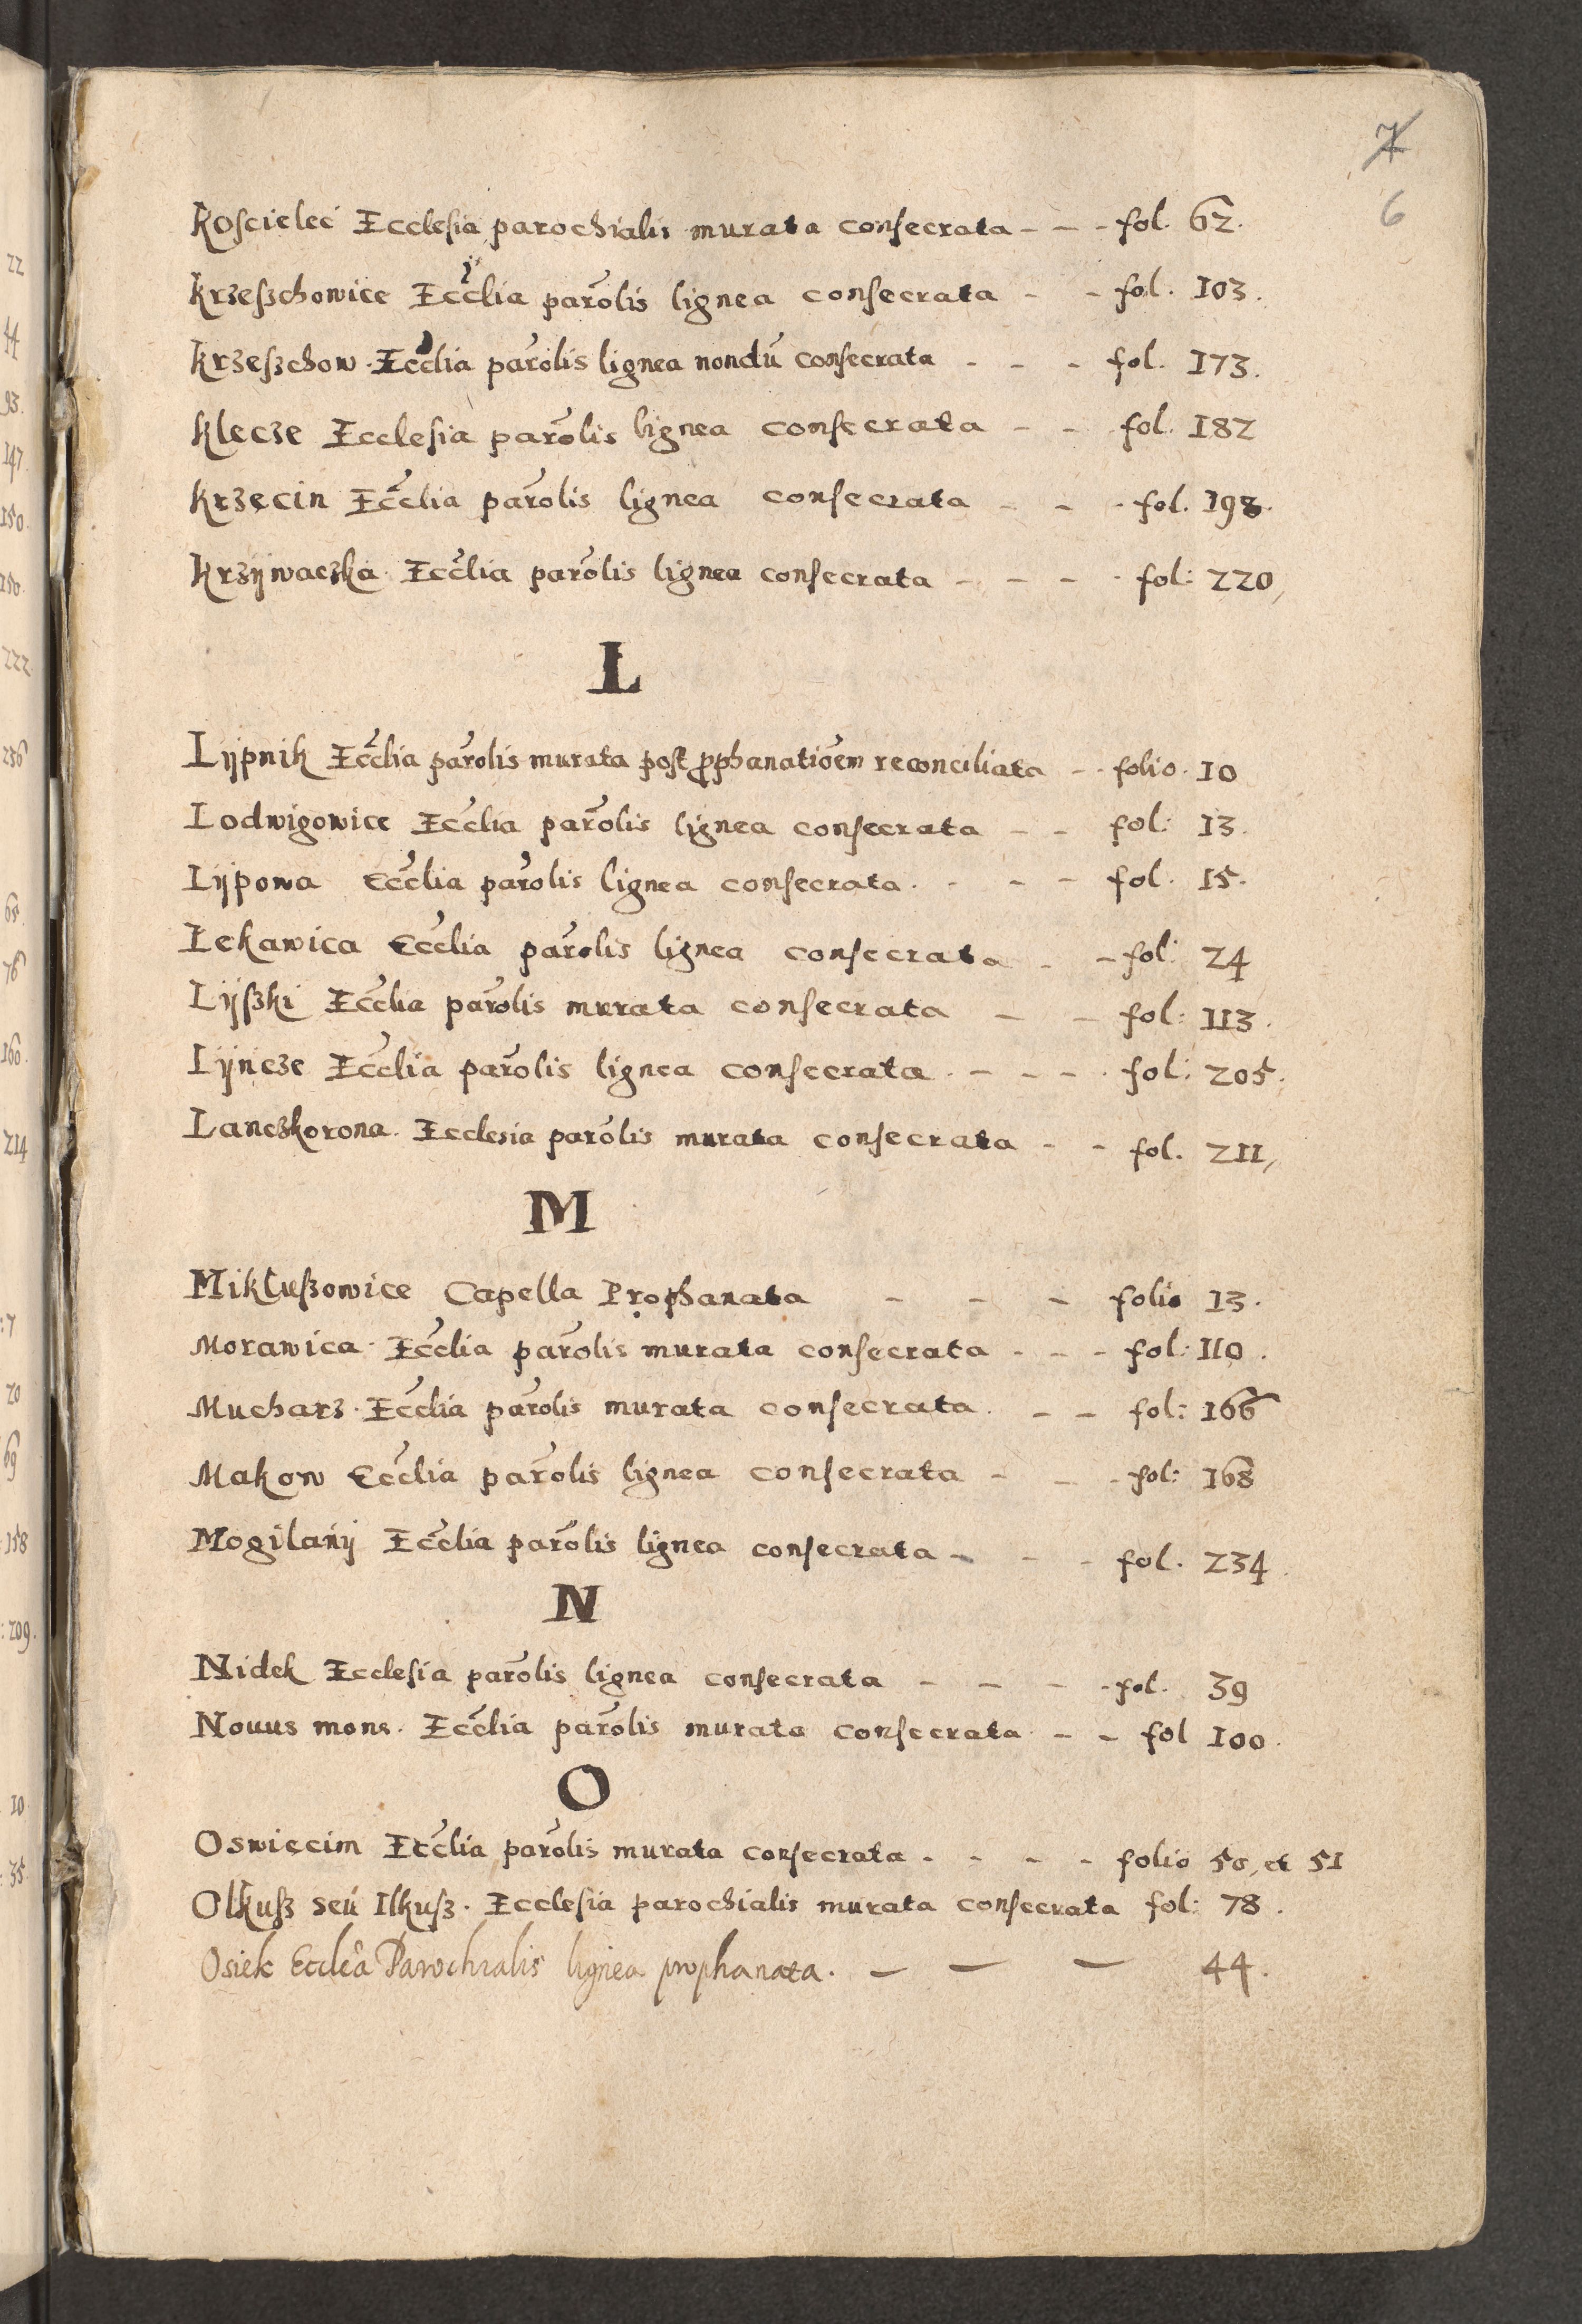 7
6
Koscielec Ecclesia parochialis murata consecrata - - - fol. 62.
Krzeszchowice Eccl̃ia parõlis lignea consecrata - - fol. 103.
Krzeszchow. Eccl̃ia parõlis lignea nondũ consecrata - - - fol. 173.
Klecze Ecclesia parõlis lignea consecrata - - fol. 182
Krzęcin Eccl̃ia parõlis lignea consecrata - - - fol. 198.
Krzÿwaczka. Eccl̃ia parõlis lignea consecrata - - - - fol: 220,
L
Lÿpnik Eccl̃ia parõlis murata post ꝓphanatiõem reconciliata - - folio. 10
Lodwigowice Eccl̃ia parõlis lignea consecrata - - fol: 13.
Lÿpowa Eccl̃ia parõlis lignea consecrata. - - - fol. 15.
Lekawica Eccl̃ia parõlis lignea consecrata - - fol: 24
Lÿszki Eccl̃ia parõlis murata consecrata - - fol: 113.
Lÿncze Eccl̃ia parõlis lignea consecrata. - - - . fol: 205.
Lanczkorona. Ecclesia parõlis murata consecrata - - fol. 211,
M
Mikluszowice Capella Prophanata - - - folio 13.
Morawica. Eccl̃ia parõlis murata consecrata - - - fol: 110.
Mucharz. Eccl̃ia parõlis murata consecrata. - - fol: 166
Makow Eccl̃ia parõlis lignea consecrata - - - fol: 168
Mogilanÿ Eccl̃ia parõlis lignea consecrata - - - fol. 234.
N
Nidek Ecclesia parõlis lignea consecrata - - - - fol. 39
Nouus mons. Eccl̃ia parõlis murata consecrata - - fol 100.
O
Oswięcim Eccl̃ia parõlis murata consecrata - - - - folio 50, et 51
Olkusz seú Ilkusz. Ecclesia parochialis murata consecrata fol: 78.
Osiek Ecclẽa Parochialis lignea prophanata. - - - 44.
22
44
93.
147.
150.
150.
222.
256
65.
76
160.
214
:7
20
69
158
:209.
10
:35